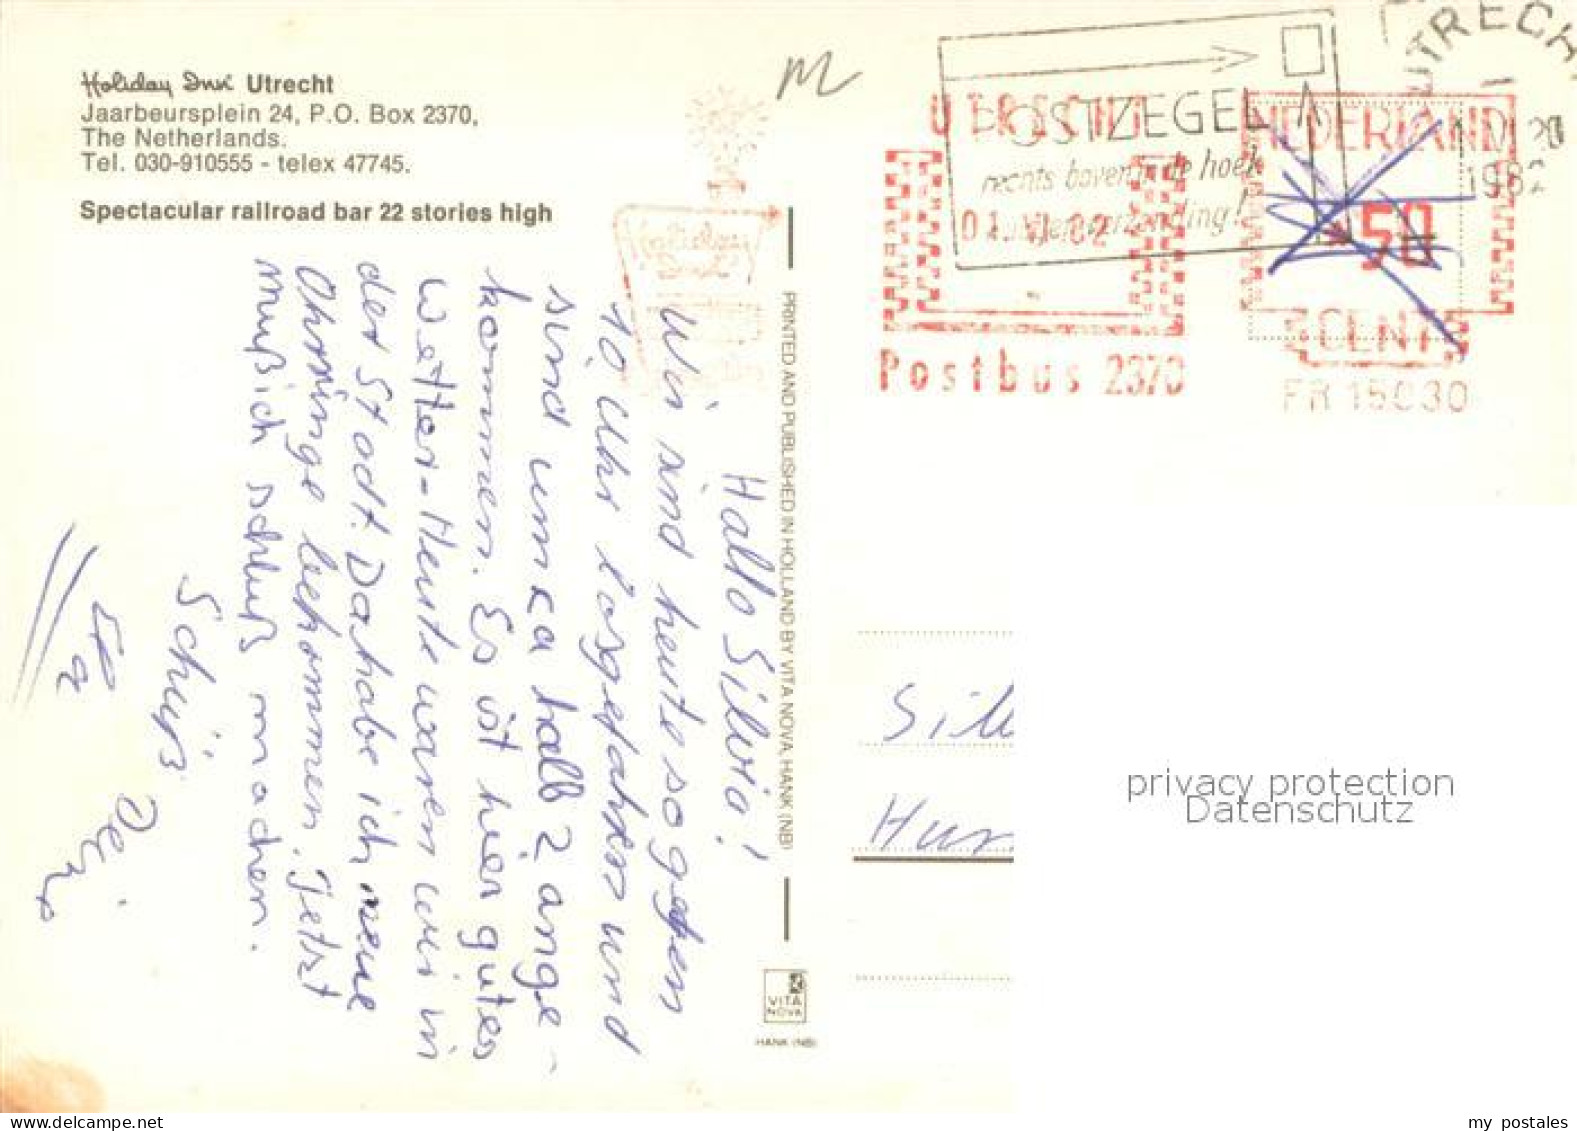 Holiday Inn Utrecht
Jaarbeursplein 24, P.O. Box 2370,
The Netherlands.
Tel. 030-910555 - telex 47745.
Spectacular railroad bar 22 stories high
m
UTRECHT
POSTZEGEL
rechts boven in de hoek
verzending!
UTRECHT
01.VI.82
Postbus 2370
NEDERLAND
50
CENT
FR 15030
1982
Holiday Inn
Hallo Silvia!
Wir sind heute so gegen
10 Uhr losgefahren und
sind um ca halb 2 ange-
kommen. Es ist hier gutes
Wetter. Heute waren wir in
der Stadt. Da habe ich neue
Ohrringe bekommen. Jetzt
muß ich schluß machen.
Schüß
PRINTED AND PUBLISHED IN HOLLAND BY VITA NOVA, HANK (NB)
VITA
NOVA
HANK (NB)
Sil
Hun
privacy protection
Datenschutz
my postales